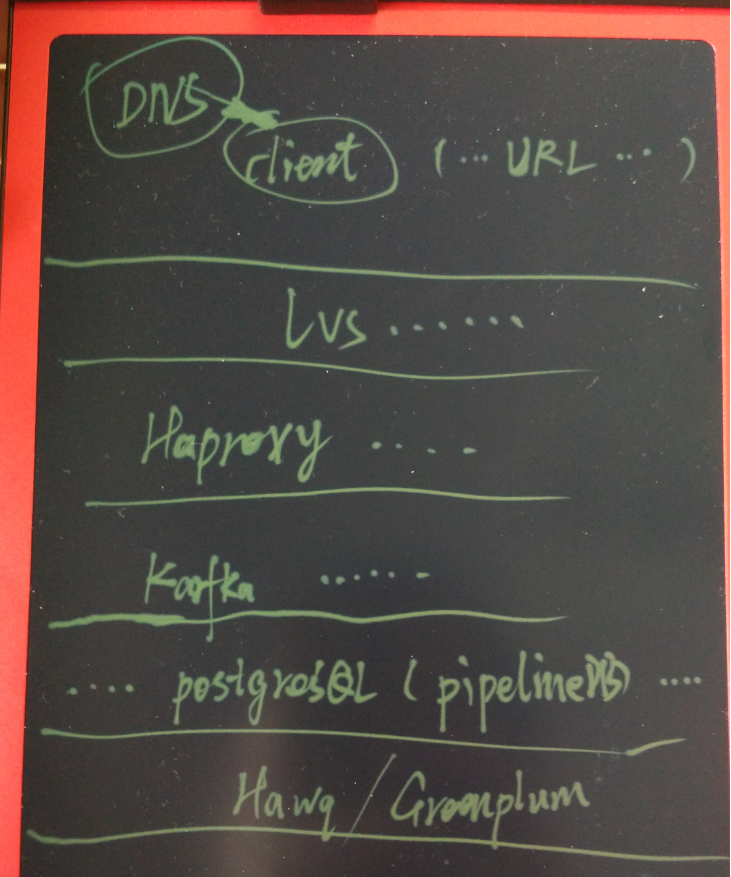 DNS
client (... URL ...)
Lvs ......
Haproxy ....
Kafka ......
.... postgresQL (pipelineDB) ....
Hawq / Greenplum